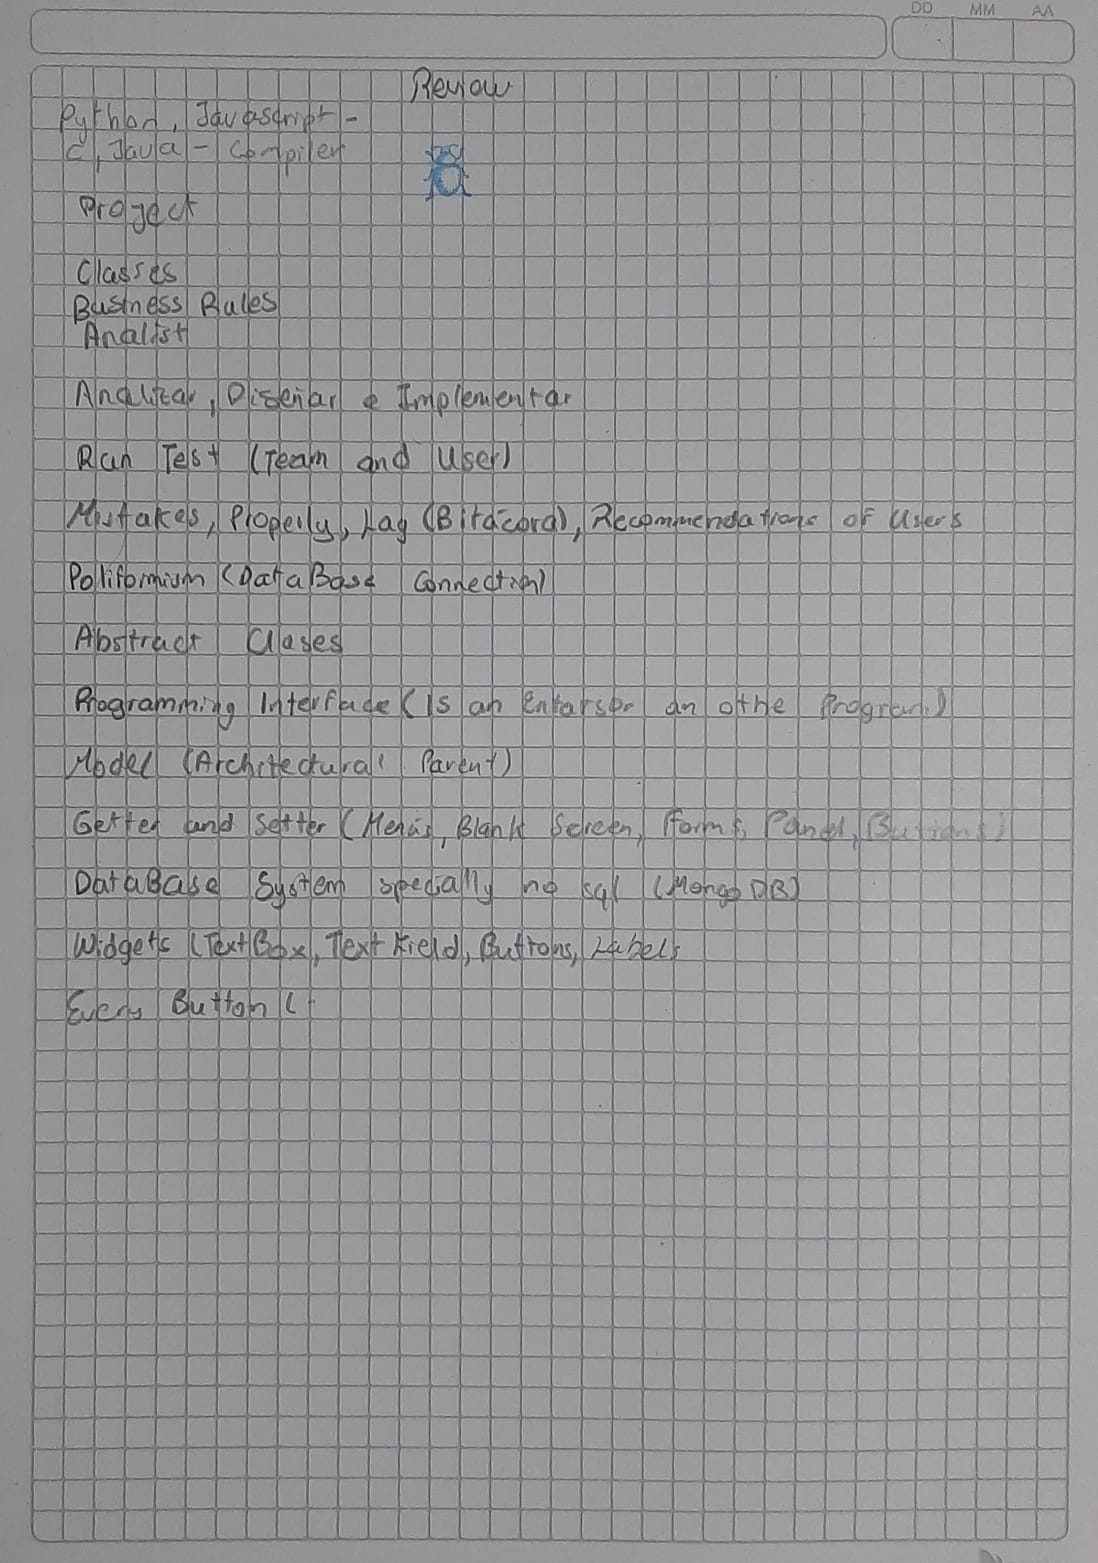 DD MM AA
Review
Python, Javascript -
C, Java - Compiler
Proyect
Classes
Business Rules
Analist
Analizar, Diseñar e Implementar
Run Test (Team and User)
Mistakes, Properly, Lag (Bitacora), Recommendations of Users
Polifomism (DataBase Connection)
Abstract Clases
Programming Interface (Is an an othe Program)
Model (Architectural Parent)
Getter and Setter (Menus, Blank Screen, Forms, Panel, Buttons)
DataBase System specially no sql (Mongo DB)
Widgets (TextBox, Text Field, Buttons, Labels
Every Button (